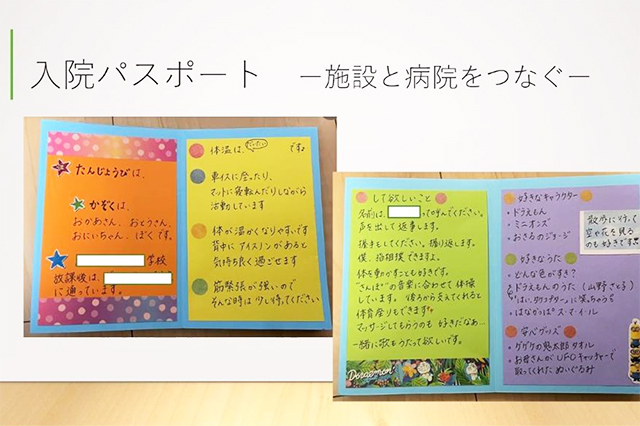 入院パスポート ー施設と病院をつなぐー
たんじょうびは、
かぞくは、
おかあさん、おとうさん、
おにいちゃん、ぼくです。
学校
放課後は、
に通っています。
体温は、だいたい です。
車イスに座ったり、
マットに寝転んだりしながら
活動しています
体が温かくなりやすいです
背中にアイスノンがあると
気持ち良く過ごせます
筋緊張が強いので
そんな時は少し待ってください
して欲しいこと
名前は、 って呼んでください。
声を出して返事します。
握手もしてください。握り返します。
僕、指相撲できますよ。
体を動かすことも好きです。
"さんぽ"の音楽に合わせて体操
しています。後ろから支えてくれると
体育座りもできます
マッサージしてもらうのも好きだなあ…
一緒に歌もうたって欲しいです。
Doraemon
好きなキャラクター
・ドラえもん
・ミニオンズ
・おさるのジョージ
散歩に行って
空や花を見る
のも好きです
好きなうた
・どんな色がすき?
・ドラえもんのうた(山野さと子)
"はい、タケコプター"よ に笑っちゃう
・はなかっぱスマイル
安心グッズ
・ゲゲゲの鬼太郎タオル
・お母さんがUFOキャッチャーで
取ってくれたぬいぐるみ